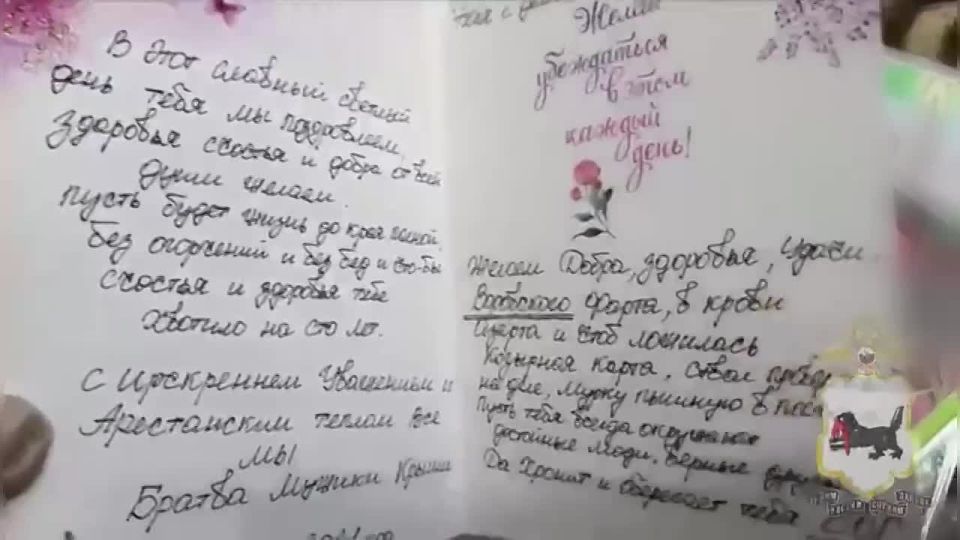 В этот славный светлый
день тебя мы поздровляем,
Здоровья счостья и добра от всей
души желаем.
пусть будет жизнь до края полной
без огорчений и без бед и что-бы
счостья и здоровья тебе
Хвотило на сто лет.
С Искреннем Уважением и
Арестанским теплом все
мы
Братва Мужики
Желаем
убеждаться
в этом
каждый
день!
Желаем Добра, здоровья, Удачи
Воровского фарта, в крови
Азарта и чтоб ложилась
Козырная карта.
на дне, мурку
Пусть тебя всегда окружают
достойные люди. Верные
Да Хронит и оберегает тебя